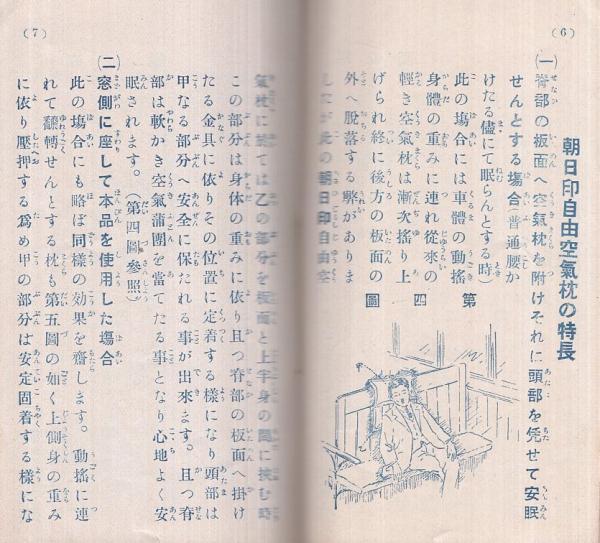 (6)
朝日印自由空氣枕の特長
(一)
脊部の板面へ空氣枕を附けそれに頭部を凭せて安眠
せんとする塲合(普通腰か
けたる儘にて眠らんとする時)
此の塲合には車體の動搖
身體の重みに連れ從來の
輕き空氣枕は漸次搖り上
げられ終に後方の板面の
外へ脫落する弊がありま
したが此の朝日印自由空
第四圖
(7)
氣枕に於ては乙の部分を板面と上半身の間に挾む時
この部分は身体の重みに依り且つ脊部の板面へ掛け
たる金具に依りその位置に定着する樣になり頭部は
甲なる部分へ安全に保たれる事が出來ます。且つ脊
部は軟かき空氣蒲團を當てたる事となり心地よく安
眠されます。(第四圖參照)
(二)
窓側に座して本品を使用した塲合
此の塲合にも略ぼ同樣の効果を齎します。動搖に連
れて飜轉せんとする枕も第五圖の如く上側身の重み
に依り壓押する爲め甲の部分は安定固着する樣にな